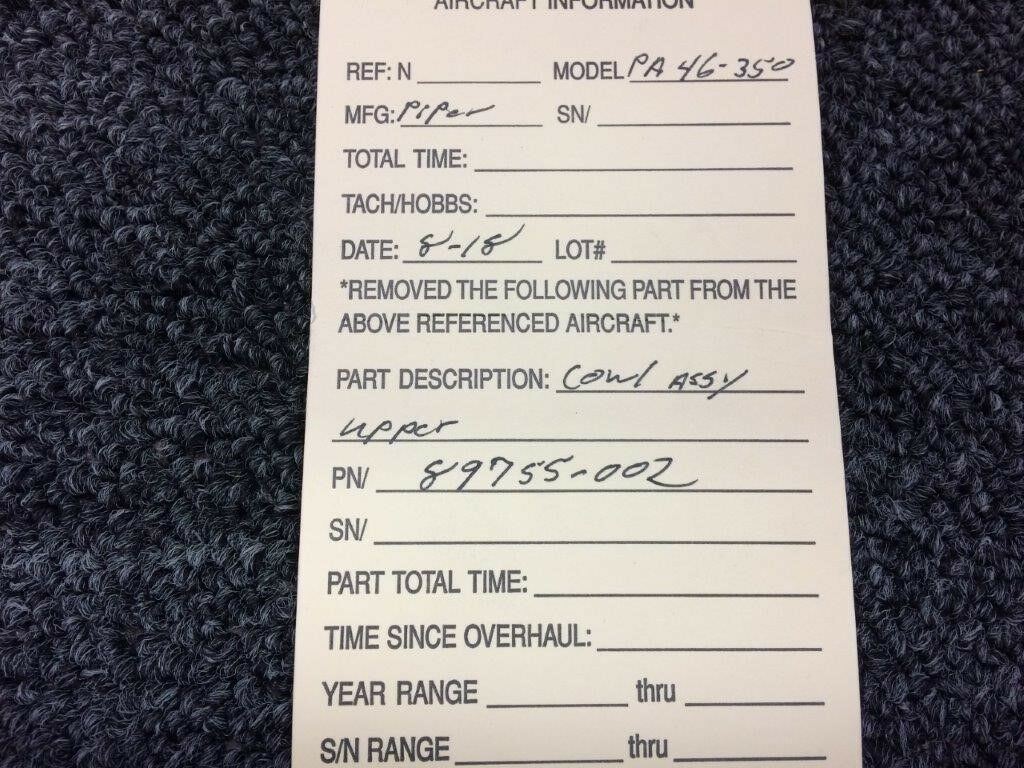 AIRCRAFT INFORMATION
REF: N MODEL PA 46-350
MFG: Piper SN/
TOTAL TIME:
TACH/HOBBS:
DATE: 8-18 LOT#
*REMOVED THE FOLLOWING PART FROM THE
ABOVE REFERENCED AIRCRAFT.*
PART DESCRIPTION: Cowl Assy
upper
PN/ 89755-002
SN/
PART TOTAL TIME:
TIME SINCE OVERHAUL:
YEAR RANGE thru
S/N RANGE thru